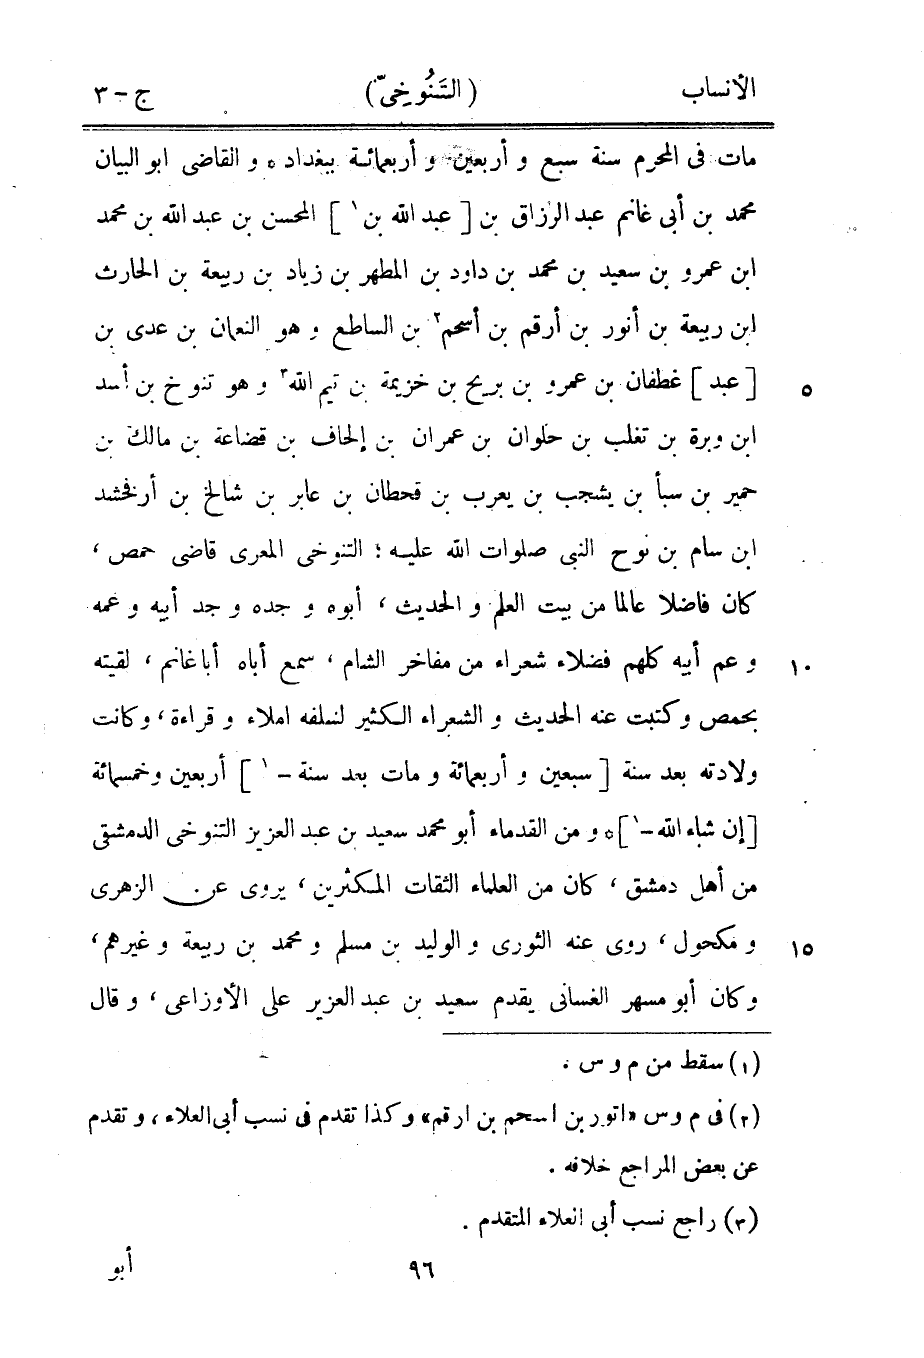 الأنساب (التَنُوخىّ) ج - ٣
مات فى المحرم سنة سبع و أربعين و أربعمائة ببغداد ٥ و القاضى ابو البيان
محمد بن أبى غانم عبد الرزاق بن [ عبد الله بن ١ ] المحسن بن عبد الله بن محمد
ابن عمرو بن سعيد بن محمد بن داود بن المطهر بن زياد بن ربيعة بن الحارث
ابن ربيعة بن أنور بن أرقم بن أسحم ٢ بن الساطع و هو النعمان بن عدى بن
[ عبد ] غطفان بن عمرو بن بريح بن خزيمة بن تيم الله ٣ و هو تنوخ بن أسد ٥
ابن وبرة بن تغلب بن حلوان بن عمران بن إلحاف بن قضاعة بن مالك بن
حمير بن سبأ بن يشجب بن يعرب بن قحطان بن عابر بن شالخ بن أرفخشد
ابن سام بن نوح النبى صلوات الله عليه ؛ التنوخى المعرى قاضى حمص ،
كان فاضلا عالما من بيت العلم و الحديث ، أبوه و جده و جد أبيه و عمه
و عم أبيه كلهم فضلاء شعراء من مفاخر الشام ، سمع أباه أبا غانم ، لقيته ١٠
بحمص و كتبت عنه الحديث و الشعراء الكثير لسلفه املاء و قراءة ، و كانت
ولادته بعد سنة [ سبعين و أربعمائة و مات بعد سنة - ١ ] أربعين وخمسمائة
[ إن شاء الله - ١ ] ٥ و من القدماء أبو محمد سعيد بن عبد العزيز التنوخى الدمشقى
من أهل دمشق ، كان من العلماء الثقات المكثرين ، يروى عن الزهرى
و مكحول ، روى عنه الثورى و الوليد بن مسلم و محمد بن ربيعة و غيرهم ، ١٥
وكان أبو مسهر الغسانى يقدم سعيد بن عبد العزيز على الأوزاعى ، و قال
(١) سقط من م و س .
(٢) فى م و س «اتور بن اسحم بن ارقم» و كذا تقدم فى نسب أبى العلاء ، و تقدم
عن بعض المراجع خلافه .
(٣) راجع نسب أبى العلاء المتقدم .
٩٦ أبو